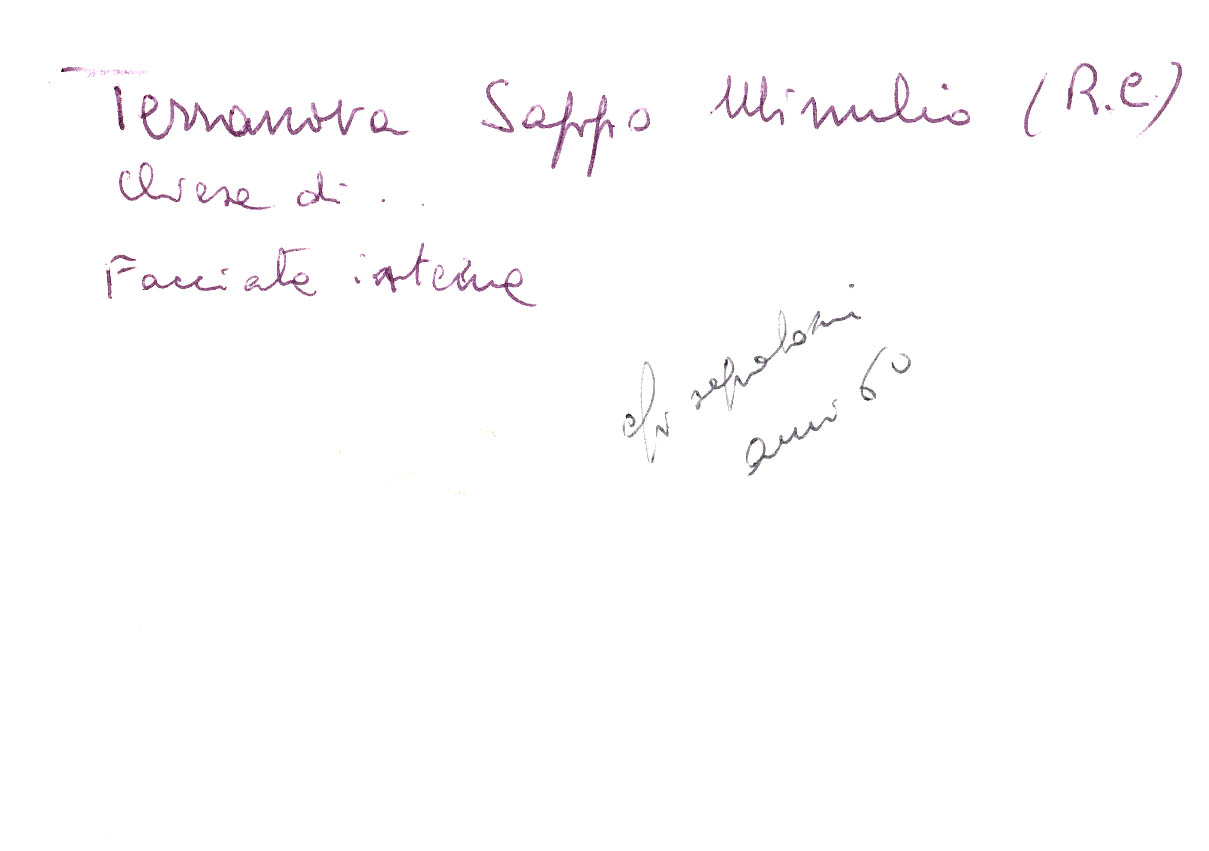 Terranova Sappo Minulio (R.C.)
Chiesa di ...
Facciata interna
cfr sepolcri
anni 60